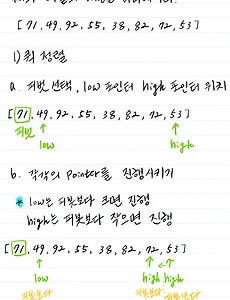 [71, 49, 92, 55, 38, 82, 72, 53]
1) 퀵 정렬
a. 피벗 선택, low 포인터 high 포인터 위치
[71, 49, 92, 55, 38, 82, 72, 53]
피벗
low
high
b. 각각의 pointer를 진행시키기
* low는 피벗보다 크면 진행
high는 피벗보다 작으면 진행
[71, 49, 92, 55, 38, 82, 72, 53]
low
high high